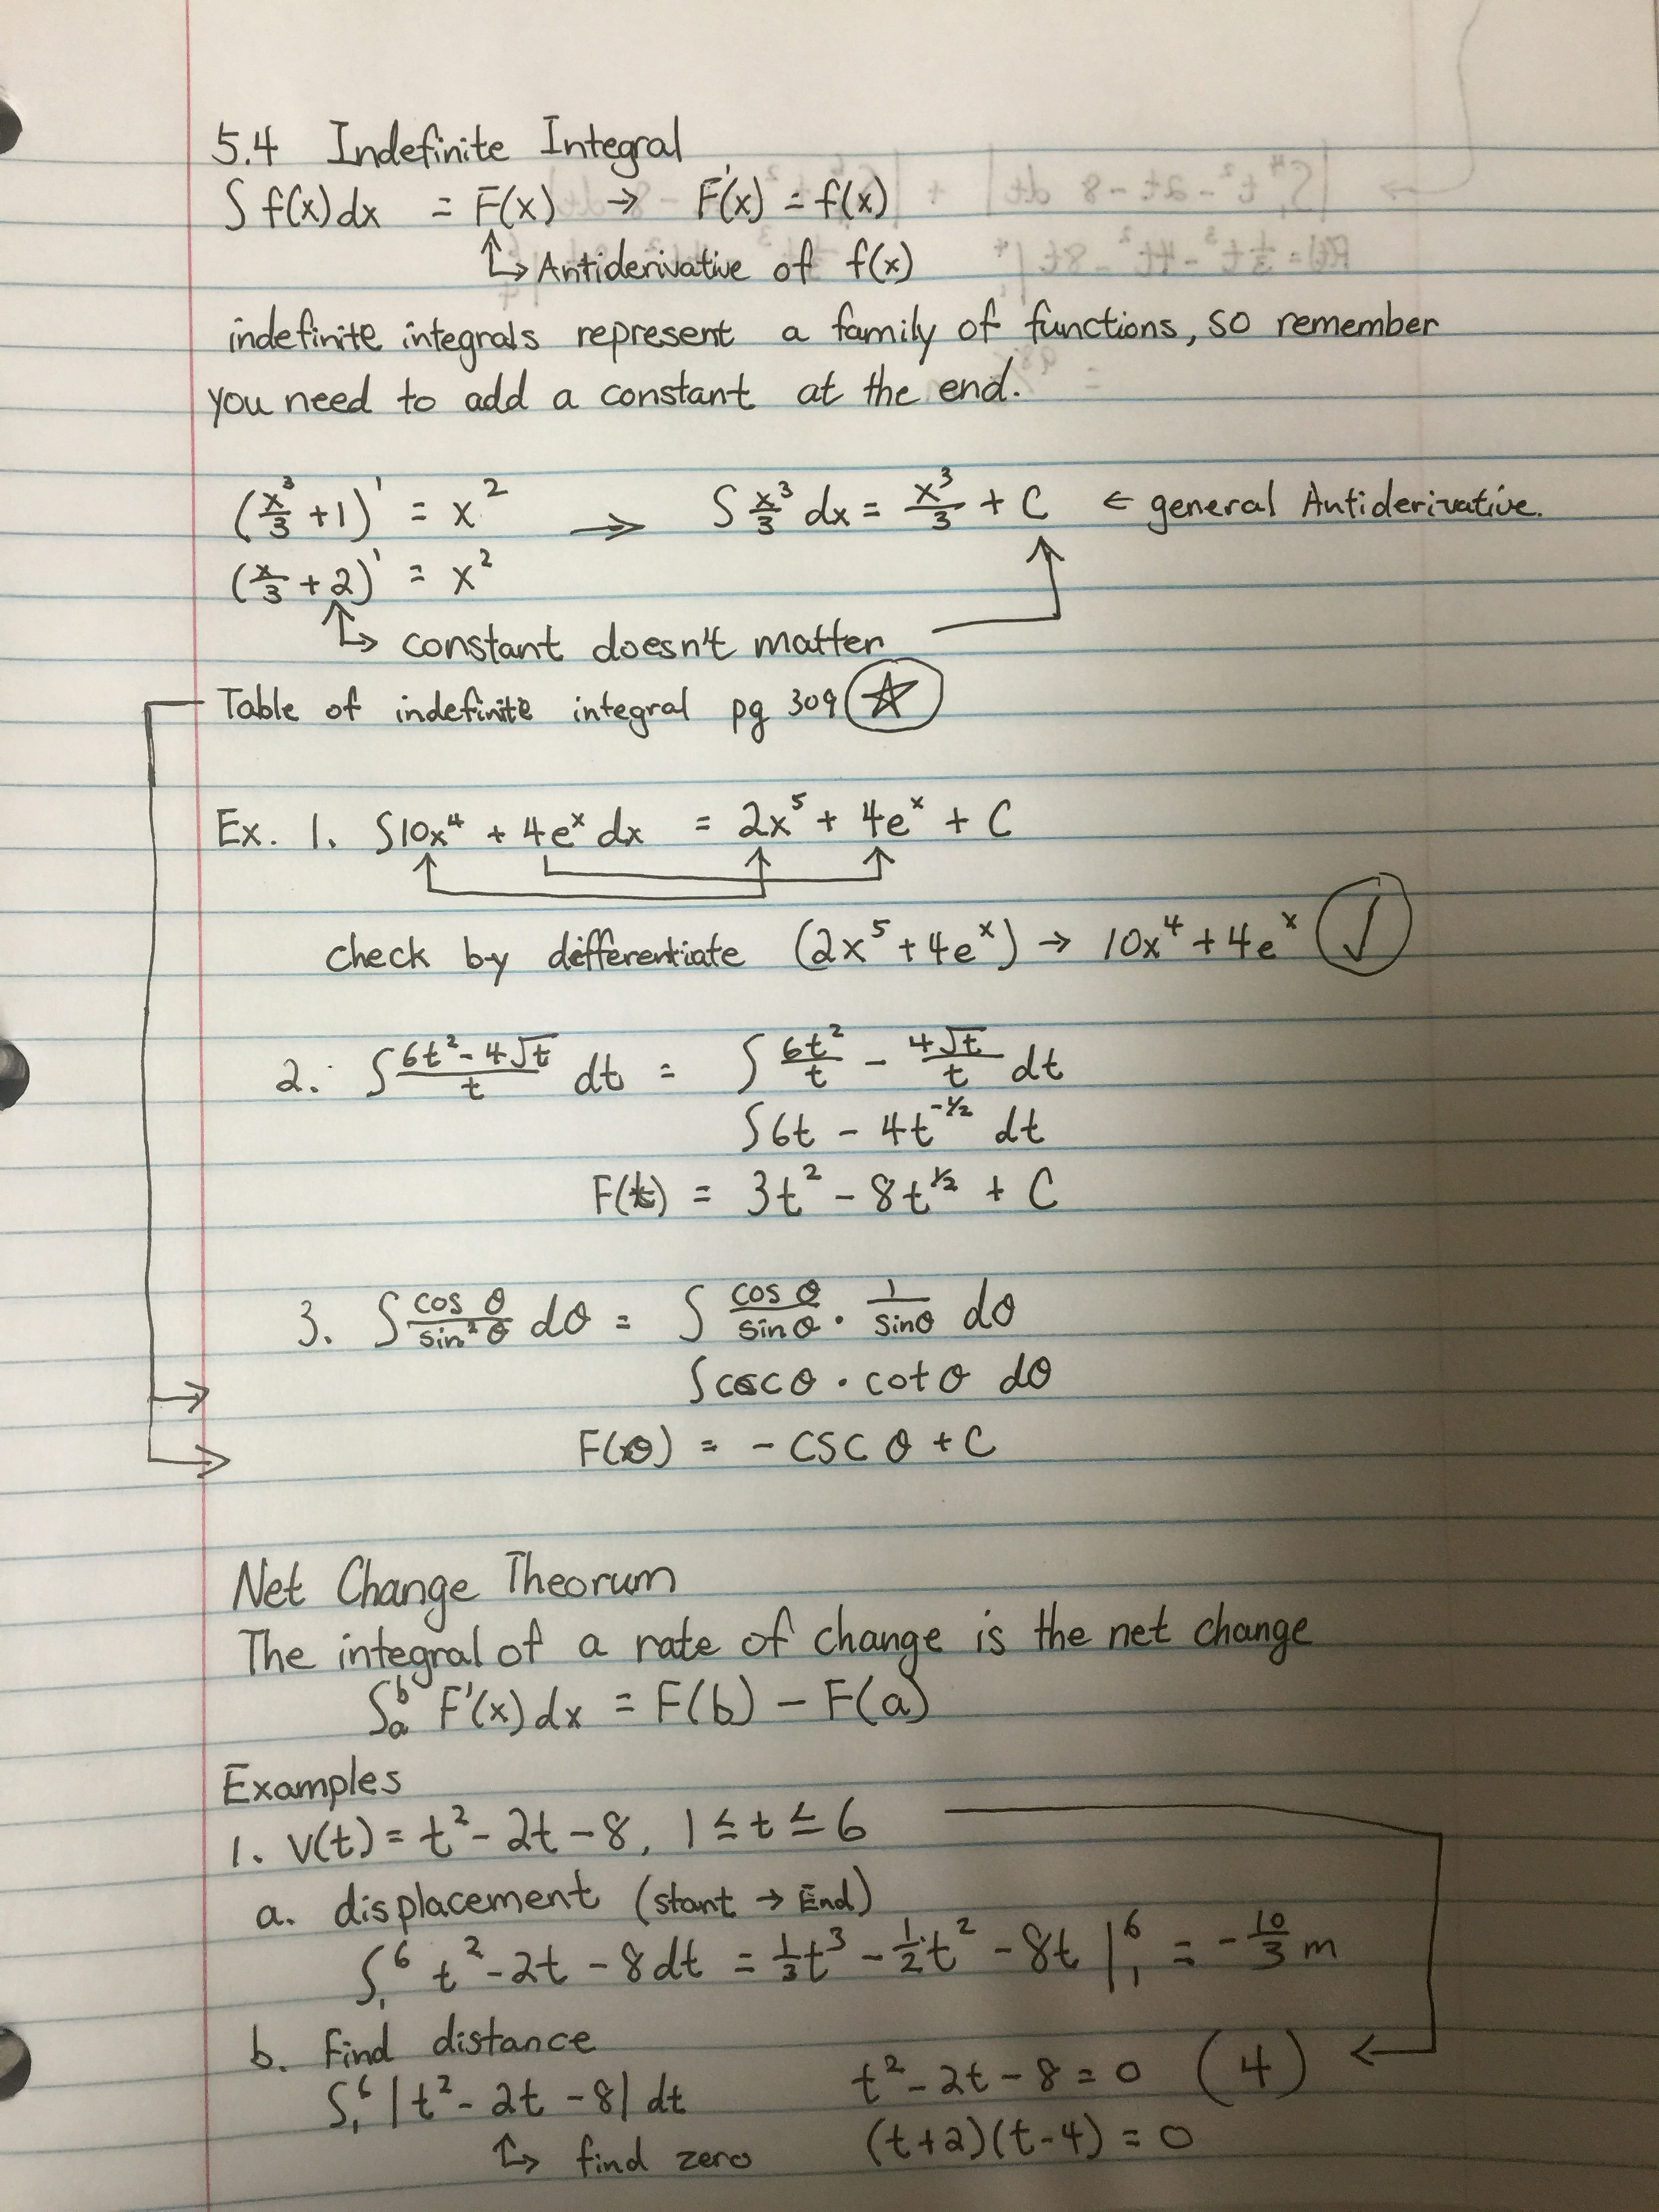 5.4 Indefinite Integral
∫ f(x) dx = F(x) → F'(x) = f(x)
↳ Antiderivative of f(x)
indefinite integrals represent a family of functions, so remember
you need to add a constant at the end.
(x³/3 + 1)' = x² → ∫ x³/3 dx = x³/3 + C ← general Antiderivative.
(x/3 + 2)' = x²
↳ constant doesn't matter
Table of indefinite integral pg 309 ☆
Ex. 1. ∫10x⁴ + 4eˣ dx = 2x⁵ + 4eˣ + C
check by differentiate (2x⁵ + 4eˣ) → 10x⁴ + 4eˣ ✓
2. ∫ (6t² - 4√t)/t dt = ∫ 6t²/t - 4√t/t dt
∫ 6t - 4t^(-1/2) dt
F(t) = 3t² - 8t^(1/2) + C
3. ∫ cos θ/sin² θ dθ = ∫ cos θ/sin θ · 1/sin θ dθ
∫ csc θ · cot θ dθ
F(θ) = - csc θ + C
Net Change Theorum
The integral of a rate of change is the net change
∫ₐᵇ F'(x) dx = F(b) - F(a)
Examples
1. v(t) = t² - 2t - 8, 1 ≤ t ≤ 6
a. displacement (start → End)
∫₁⁶ t² - 2t - 8 dt = 1/3 t³ - 1/2 t² - 8t |₁⁶ = - 10/3 m
b. find distance
∫₁⁶ |t² - 2t - 8| dt t² - 2t - 8 = 0 (4) ←
↳ find zero (t+2)(t-4) = 0